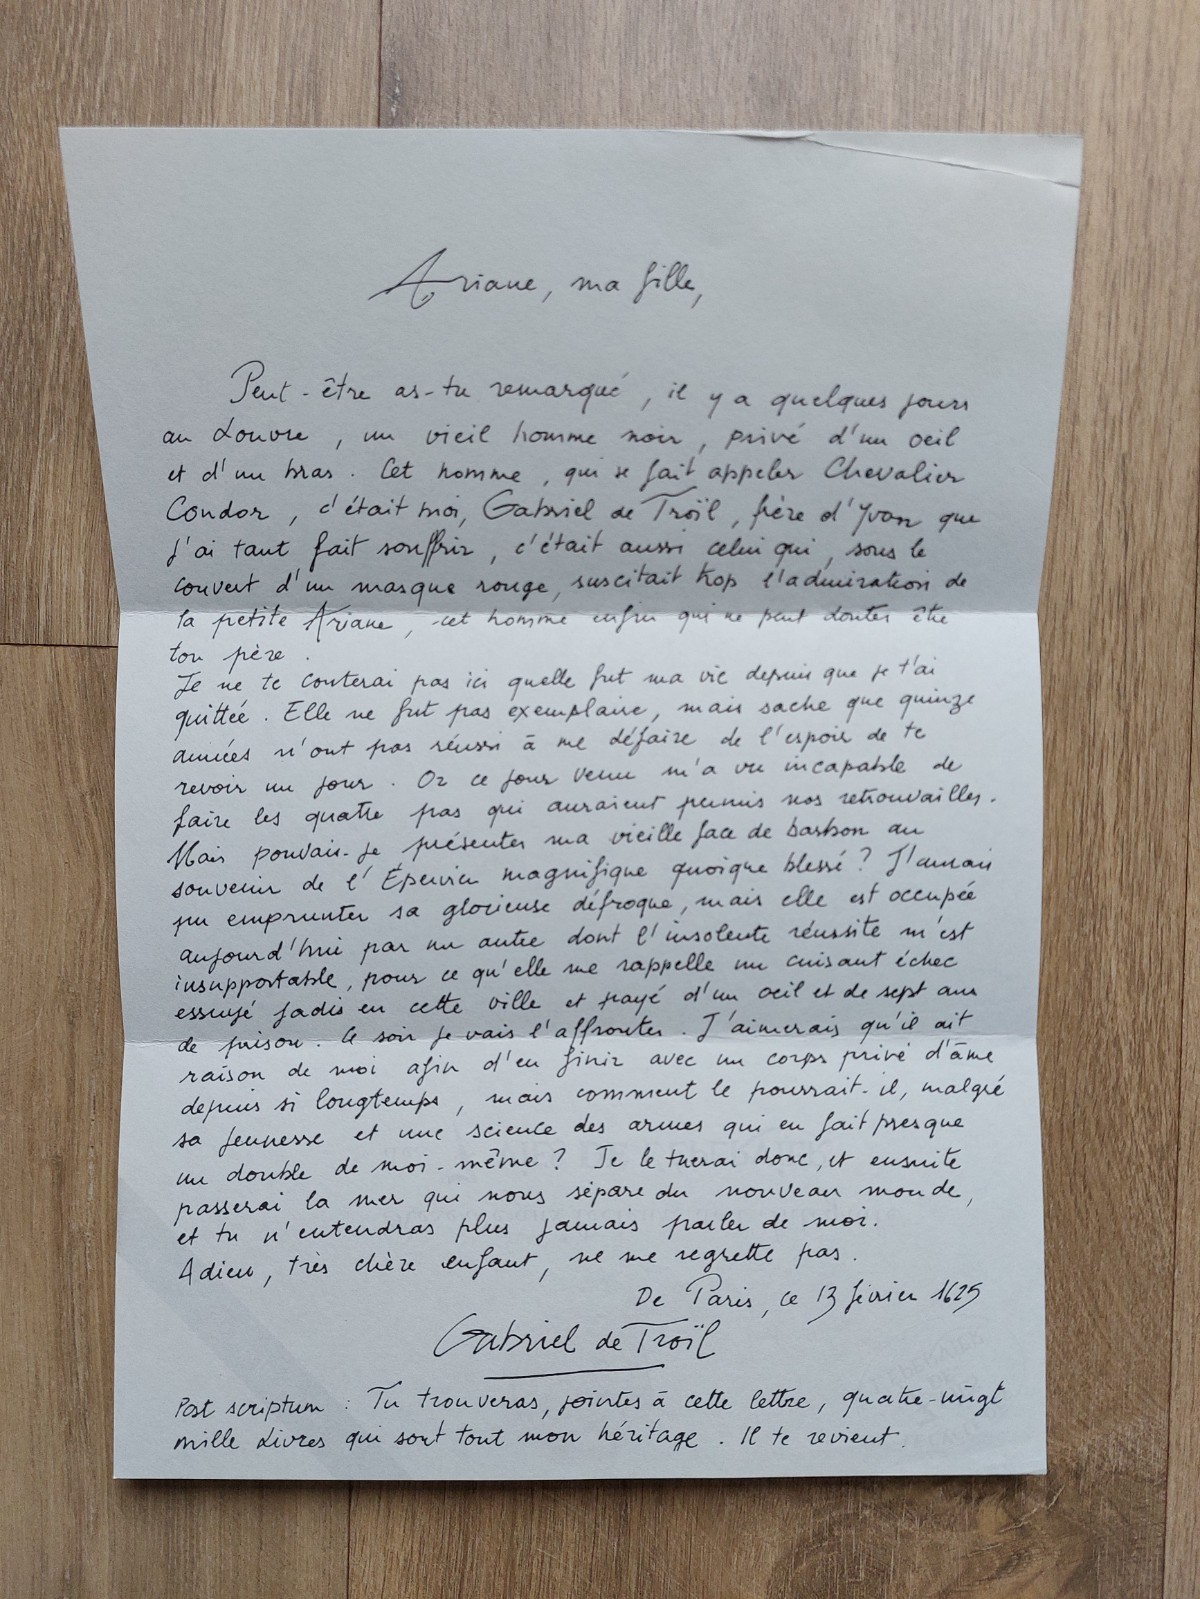 Ariane, ma fille,
Peut-être as-tu remarqué, il y a quelques jours
au Louvre, un vieil homme noir, privé d'un oeil
et d'un bras. Cet homme, qui se fait appeler Chevalier
Condor, c'était moi, Gabriel de Troïl, frère d'Yvan que
j'ai tant fait souffrir, c'était aussi celui qui, sous le
couvert d'un masque rouge, suscitait trop l'admiration de
la petite Ariane, cet homme enfin qui ne peut douter être
ton père.
Je ne te conterai pas ici quelle fut ma vie depuis que je t'ai
quittée. Elle ne fut pas exemplaire, mais sache que quinze
années n'ont pas réussi à me défaire de l'espoir de te
revoir un jour. Or ce jour venu m'a vu incapable de
faire les quatre pas qui auraient permis nos retrouvailles.
Mais pouvais-je présenter ma vieille face de barbon au
souvenir de l'Épervier magnifique quoique blessé? J'aurais
pu emprunter sa glorieuse défroque, mais elle est occupée
aujourd'hui par un autre dont l'insolente réussite m'est
insupportable, pour ce qu'elle me rappelle un cuisant échec
essuyé jadis en cette ville et payé d'un oeil et de sept ans
de prison. Ce soir je vais l'affronter. J'aimerais qu'il ait
raison de moi afin d'en finir avec un corps privé d'âme
depuis si longtemps, mais comment le pourrait-il, malgré
sa jeunesse et une science des armes qui en fait presque
un double de moi-même? Je le tuerai donc, et ensuite
passerai la mer qui nous sépare du nouveau monde,
et tu n'entendras plus jamais parler de moi.
Adieu, très chère enfant, ne me regrette pas.
De Paris, ce 13 février 1625
Gabriel de Troïl
Post scriptum : Tu trouveras, jointes à cette lettre, quatre-vingt
mille Livres qui sont tout mon héritage. Il te revient.